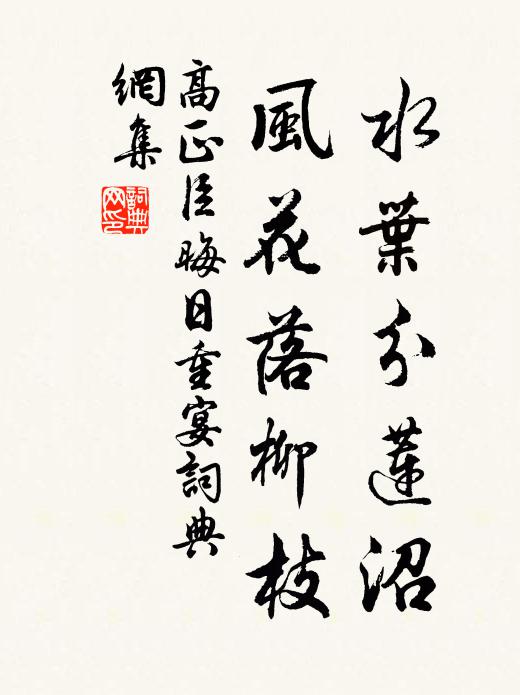 水葉分蓮沼
風花落柳枝
高正臣晦日重宴詞典
網集
詞典
網印